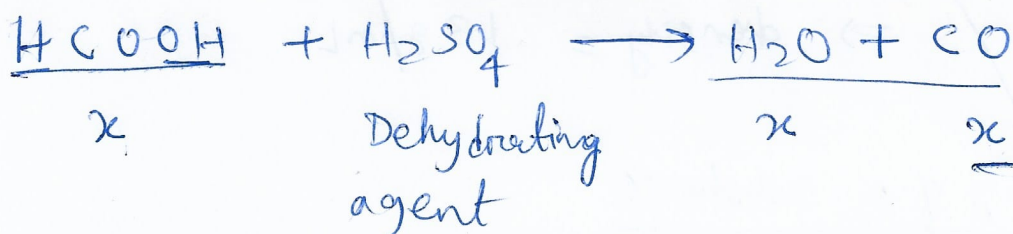 HCOOH + H₂SO₄ ⟶ H₂O + CO
x Dehydrating x x
agent